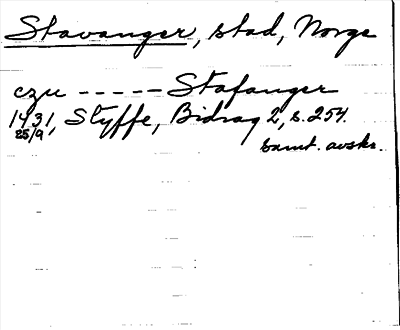 Stavanger, stad, Norge
czu ----- Stafanger
1431, Styffe, Bidrag 2, s. 254.
25/9
samt. avskr.